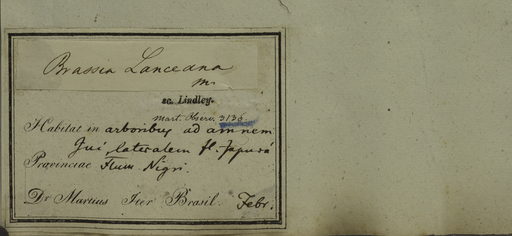 Brassia Lanceana
m.
sc. Lindley.
Mart. Observ. 3135
Habitat in arboribus ad amnem
Juí, lateralem fl. Japurá
Provinciae Flum. Nigri.
Dr Martius Iter Brasil. Febr.